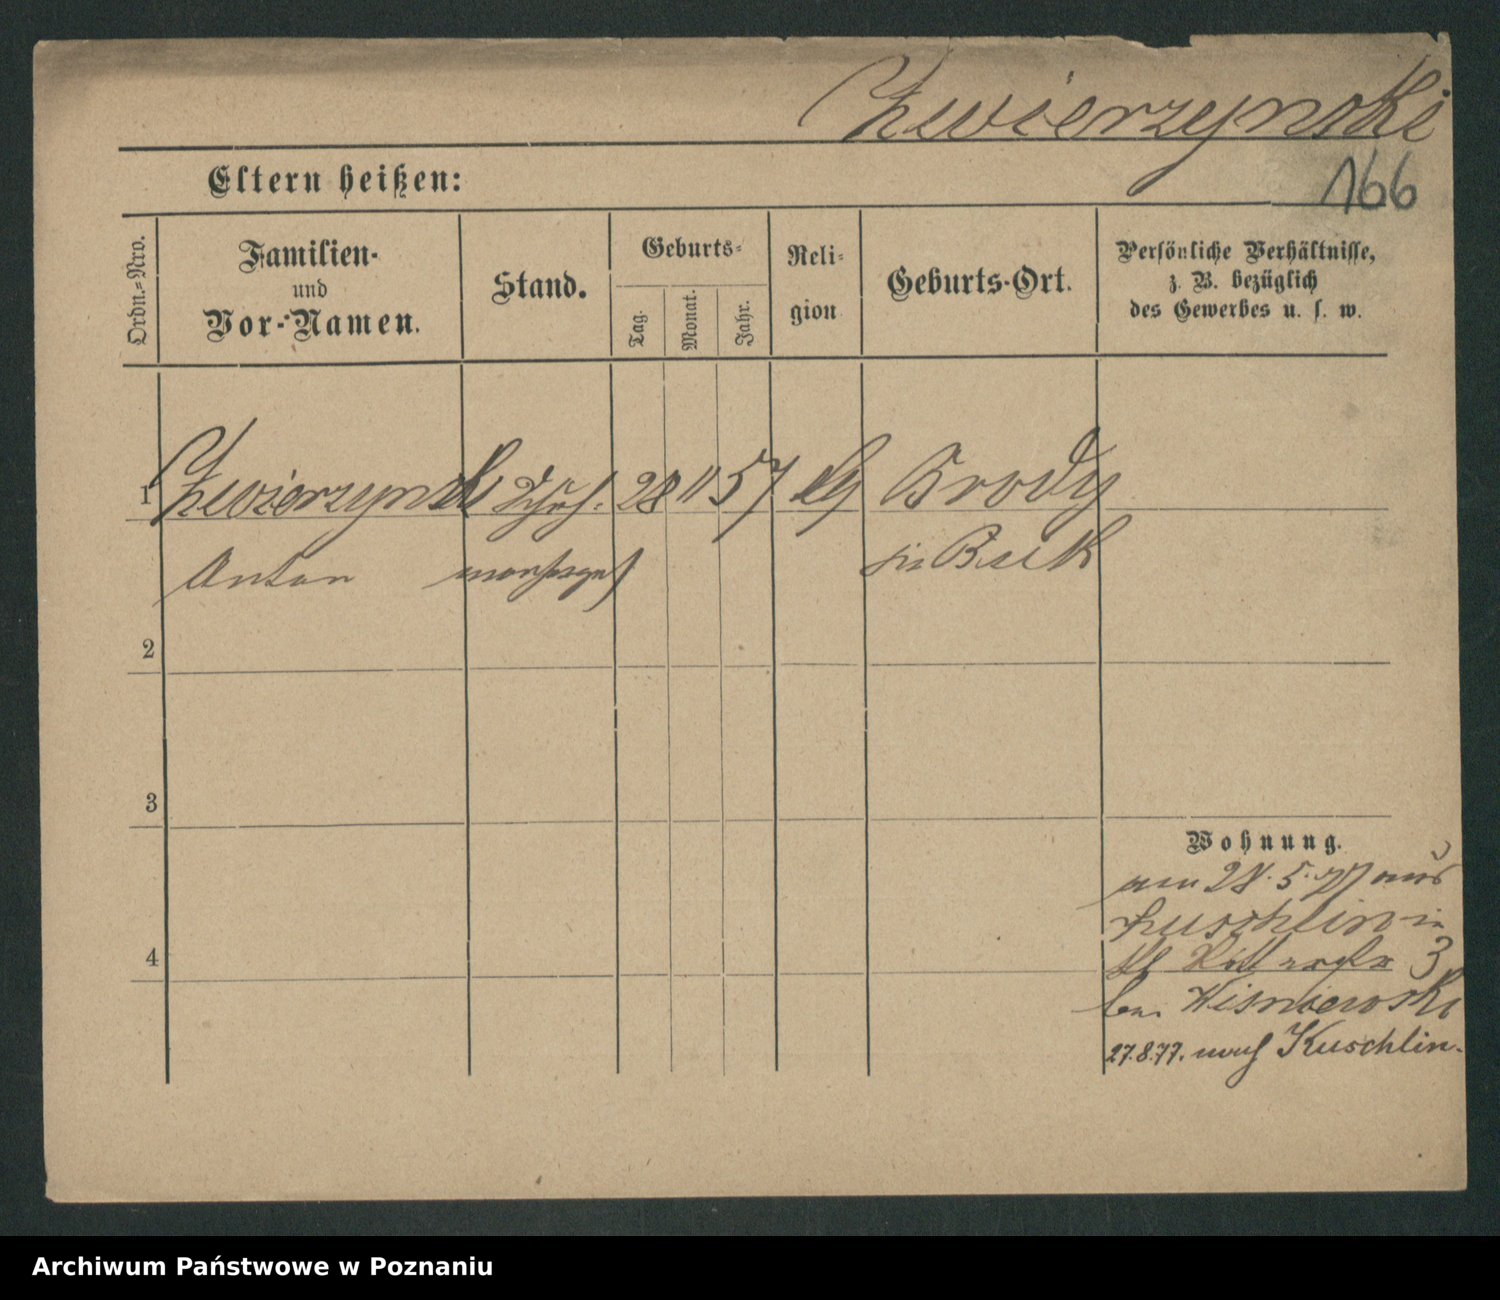 Zwierzynski
166
Eltern heißen:
Ordn.=Nro.
Familien-
und
Vor-Namen.
Stand.
Geburts-
Tag.
Monat.
Jahr.
Reli-
gion
Geburts-Ort.
Persönliche Verhältnisse,
z. B. bezüglich
des Gewerbes u. s. w.
1 Zwierzynski 28 11 57 Brody
Anton in Buk
2
3
4
Wohnung.
am 28. 5. 77 aus
Kuschlin in
3
bei Wisniewski
27.8.77. nach Kuschlin.
Archiwum Państwowe w Poznaniu